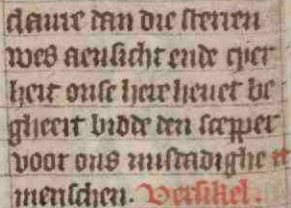 claure dan die sterren
wes aensicht ende cyer
heit onse here heuet be
gheert bidde den scepper
voor ons misdadighe
menschen. Versikel.